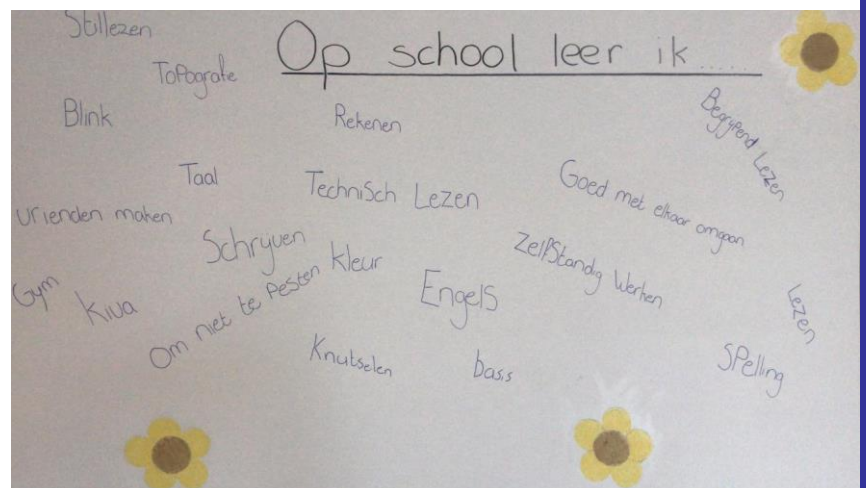 Stillezen
Op school leer ik .....
Topografe
Blink
Rekenen
Begrypend Lezen
Taal
Technisch Lezen
Goed met elkaar omgaan
Vrienden maken
Schryven
Kleur
Zelfstandig Werken
Gym
Kiva
Om niet te Pesten
Engels
Lezen
Knutselen
basis
Spelling